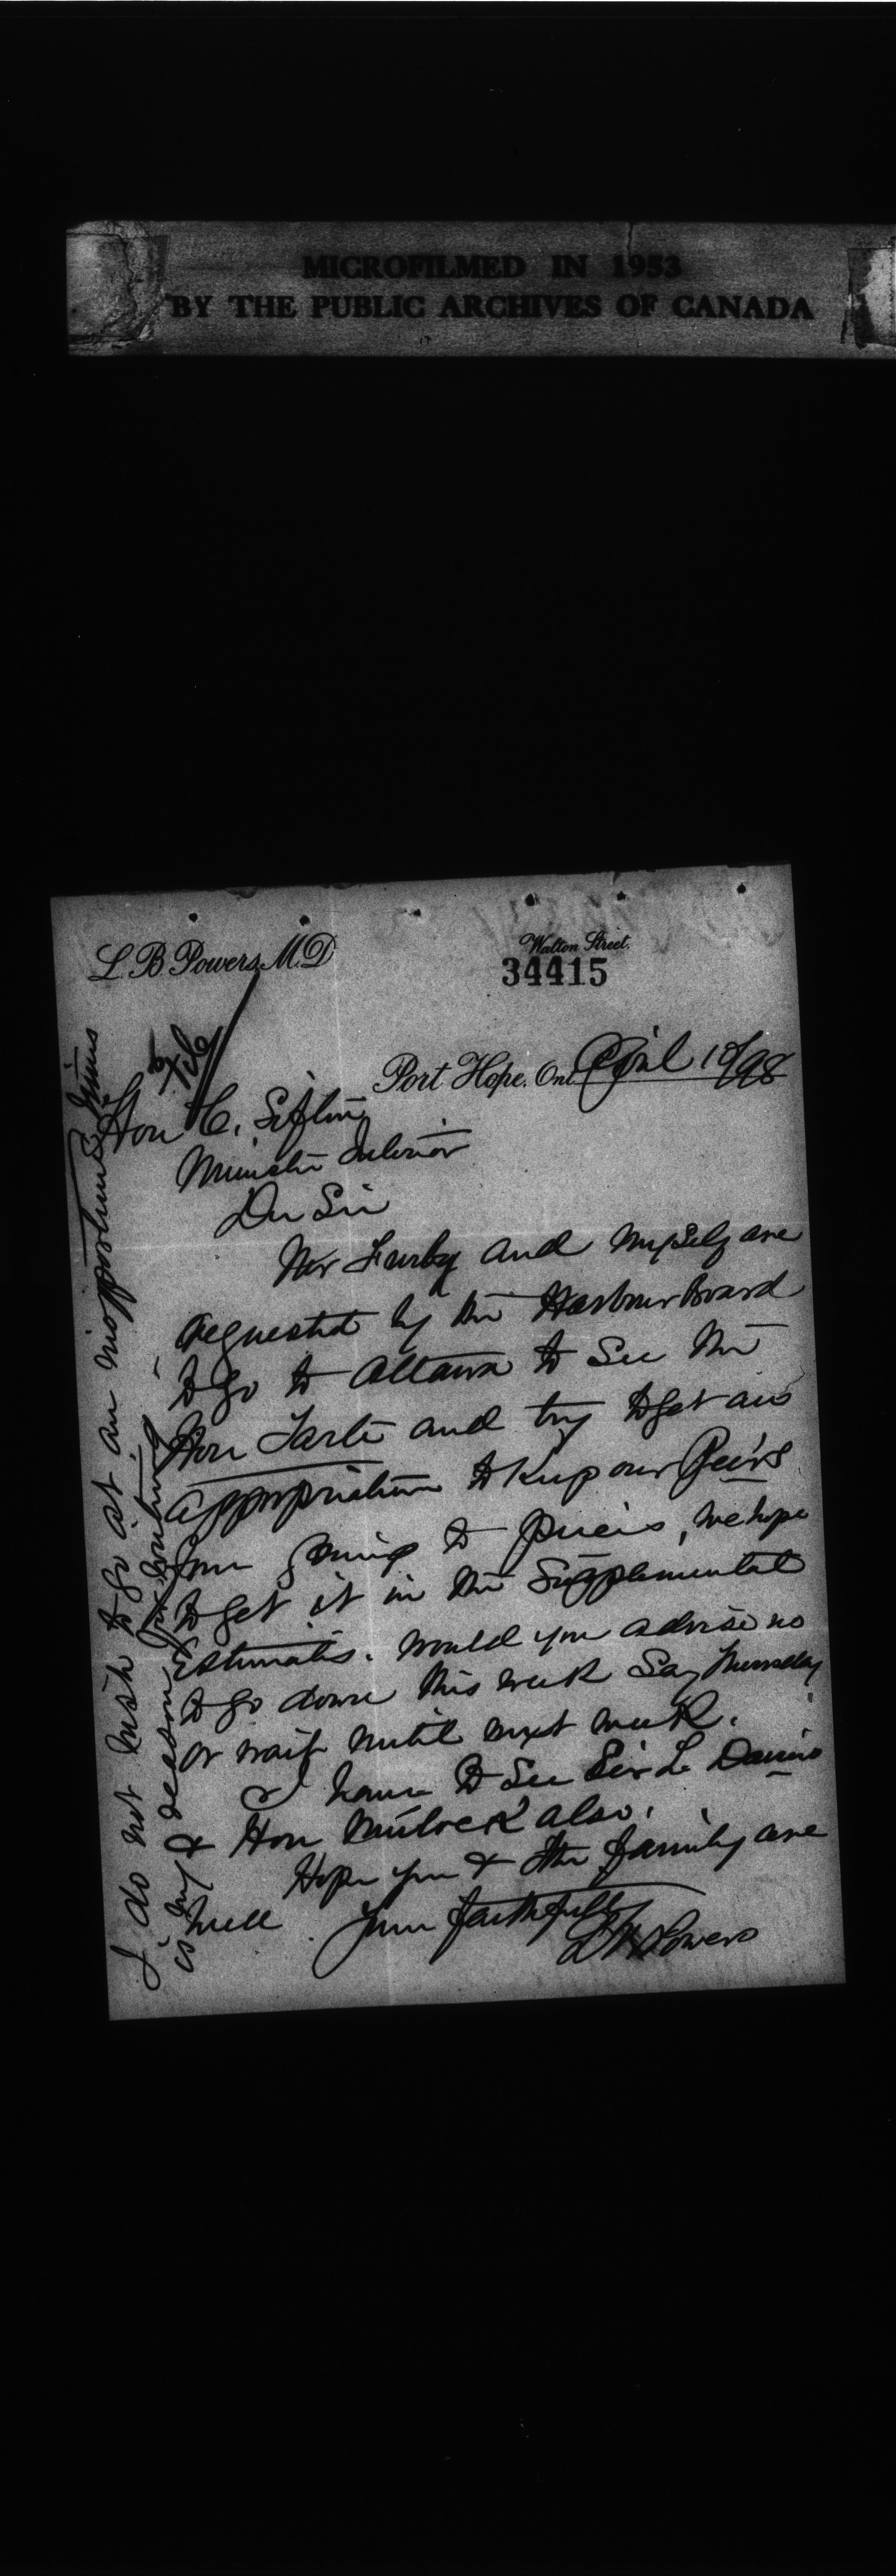 MICROFILMED IN 1953
BY THE PUBLIC ARCHIVES OF CANADA
L. B Powers, M.D
Walton Street.
34415
Port Hope, Ont April 18/98
Hon C. Sifton
Minister Interior
Dr Sir
Mr Furby and myself are
requested by the Harbour Board
to go to Ottawa to see the
Hon Tarte and try to get an
appropriation to keep our Peirs
from going to pieces, we hope
to get it in the Supplemental
Estimates. Would you advise us
to go down this week say Thursday
or wait until next week.
I have to see Sir L. Davies
& Hon Mulock also.
Hope you & the family are
well
Your faithfully
L B Powers
I do not wish to go at an inopportune time
is my reason for writing